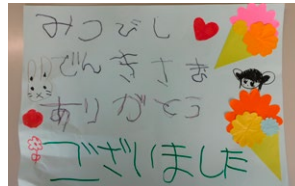 みつびし
でんきさま
ありがとう
ございました